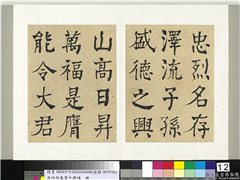 忠烈名存
澤流子孫
盛德之興
山高日昇
萬福是膺
能令大君
12